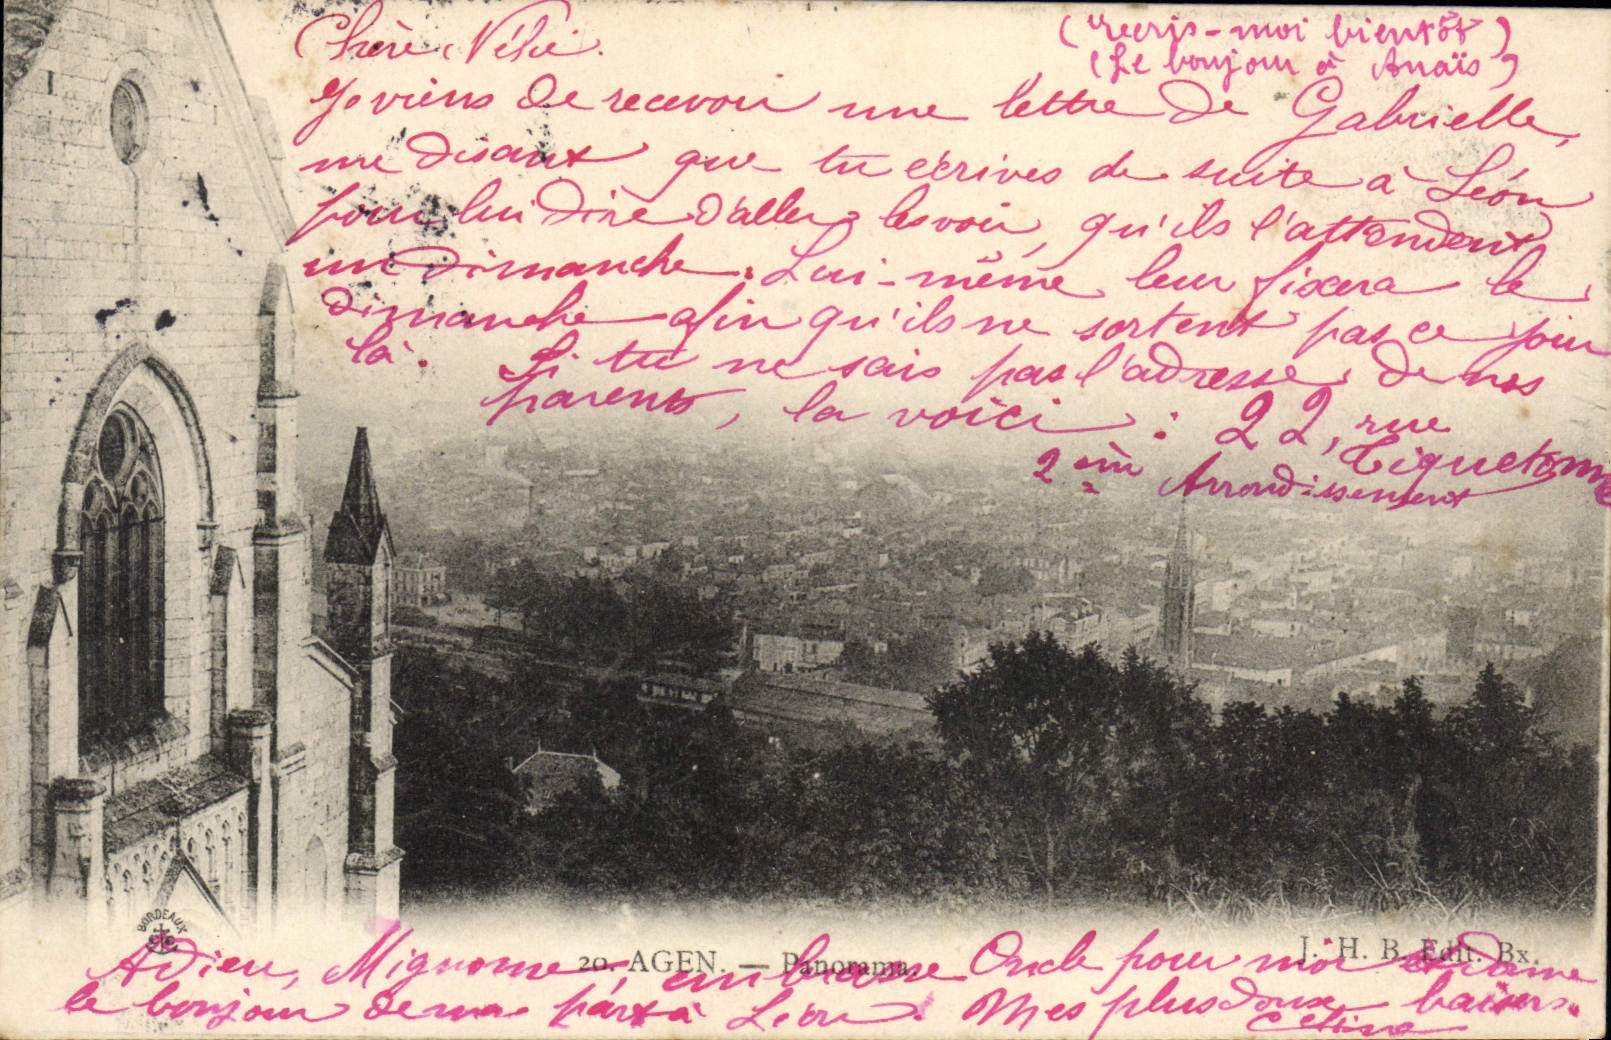 (récris-moi bientôt)
(Le bonjour à Anaïs)
Chère Nélie.
Je viens de recevoir une lettre de Gabrielle,
me disant que tu écrives de suite à Léon
pour lui dire d'aller les voir, qu'ils l'attendent
un dimanche. Lui-même leur fixera le
dimanche afin qu'ils ne sortent pas ce jour
là. Si tu ne sais pas l'adresse de nos
parents, la voici : 22, rue
Tiquetonne
2ème Arrondissement
BORDEAUX
20. AGEN. — Panorama.
J. H. B. Edit. Bx.
Adieu, Mignonne, embrasse Oncle pour moi et donne
le bonjour de ma part à Léon. Mes plus doux baisers.
Céline